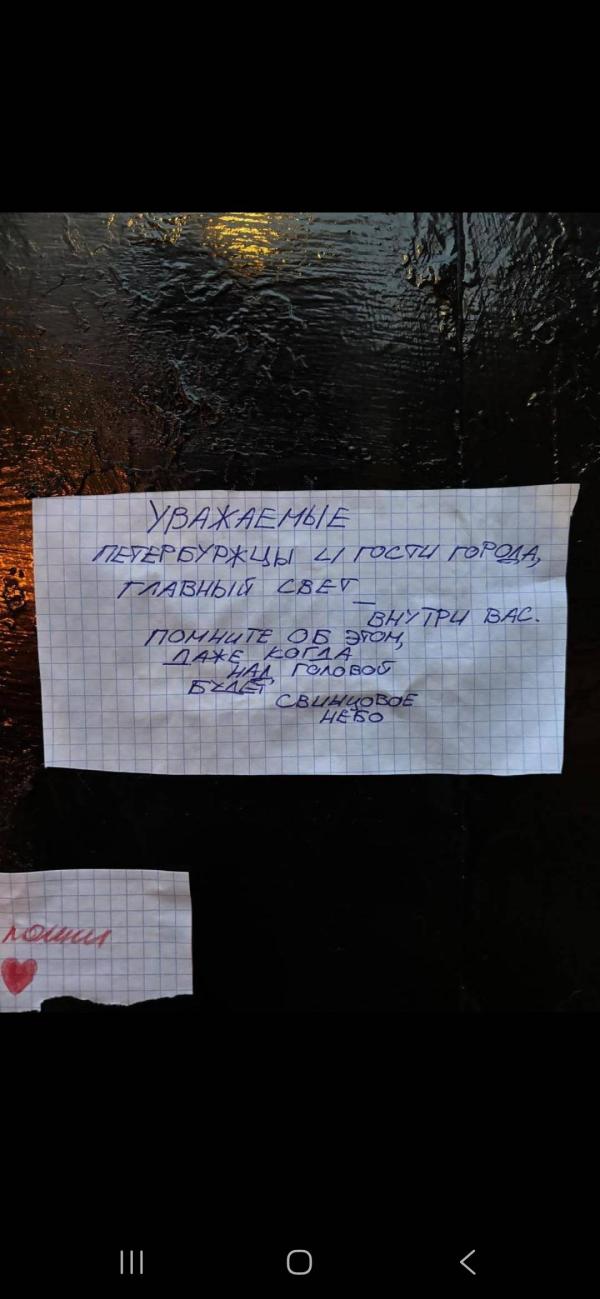 УВАЖАЕМЫЕ
ПЕТЕРБУРЖЦЫ И ГОСТИ ГОРОДА,
ГЛАВНЫЙ СВЕТ _
ВНУТРИ ВАС.
ПОМНИТЕ ОБ ЭТОМ,
ДАЖЕ КОГДА
НАД ГОЛОВОЙ
БУДЕТ
СВИНЦОВОЕ
НЕБО